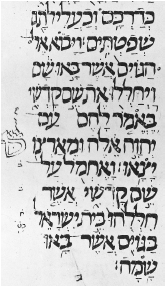 כדרכם וכעלילותם
שפטתים ויבוא אל
הגוים אשר באו שם
ויחללו את שם קדשי
באמר להם עם
יהוה אלה ומארצו
יצאו ואחמל על
שם קדשי אשר
חללוהו בית ישראל
בגוים אשר באו
שמה׃